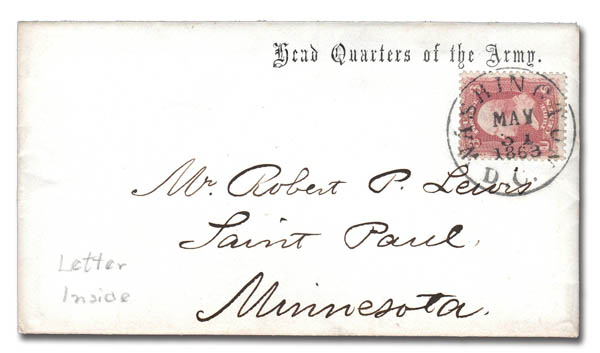 Head Quarters of the Army.
WASHINGTON
MAY
31
1863
D.C.
Mr. Robert P. Lewis
Saint Paul,
Minnesota.
Letter
Inside